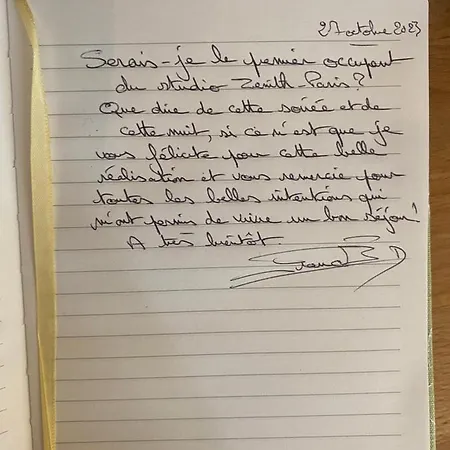 27 octobre 2023
Serais-je le premier occupant
du studio Zenith-Paris ?
Que dire de cette soirée et de
cette nuit, si ce n'est que je
vous félicite pour cette belle
réalisation et vous remercie pour
toutes les belles intentions qui
m'ont permis de vivre un bon séjour !
A très bientôt.